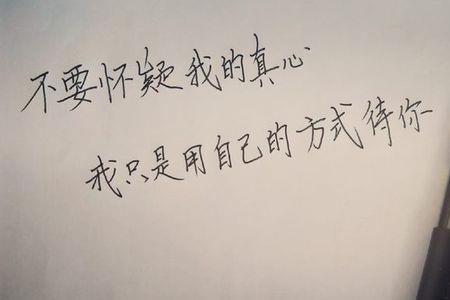 不要怀疑我的真心
我只是用自己的方式待你